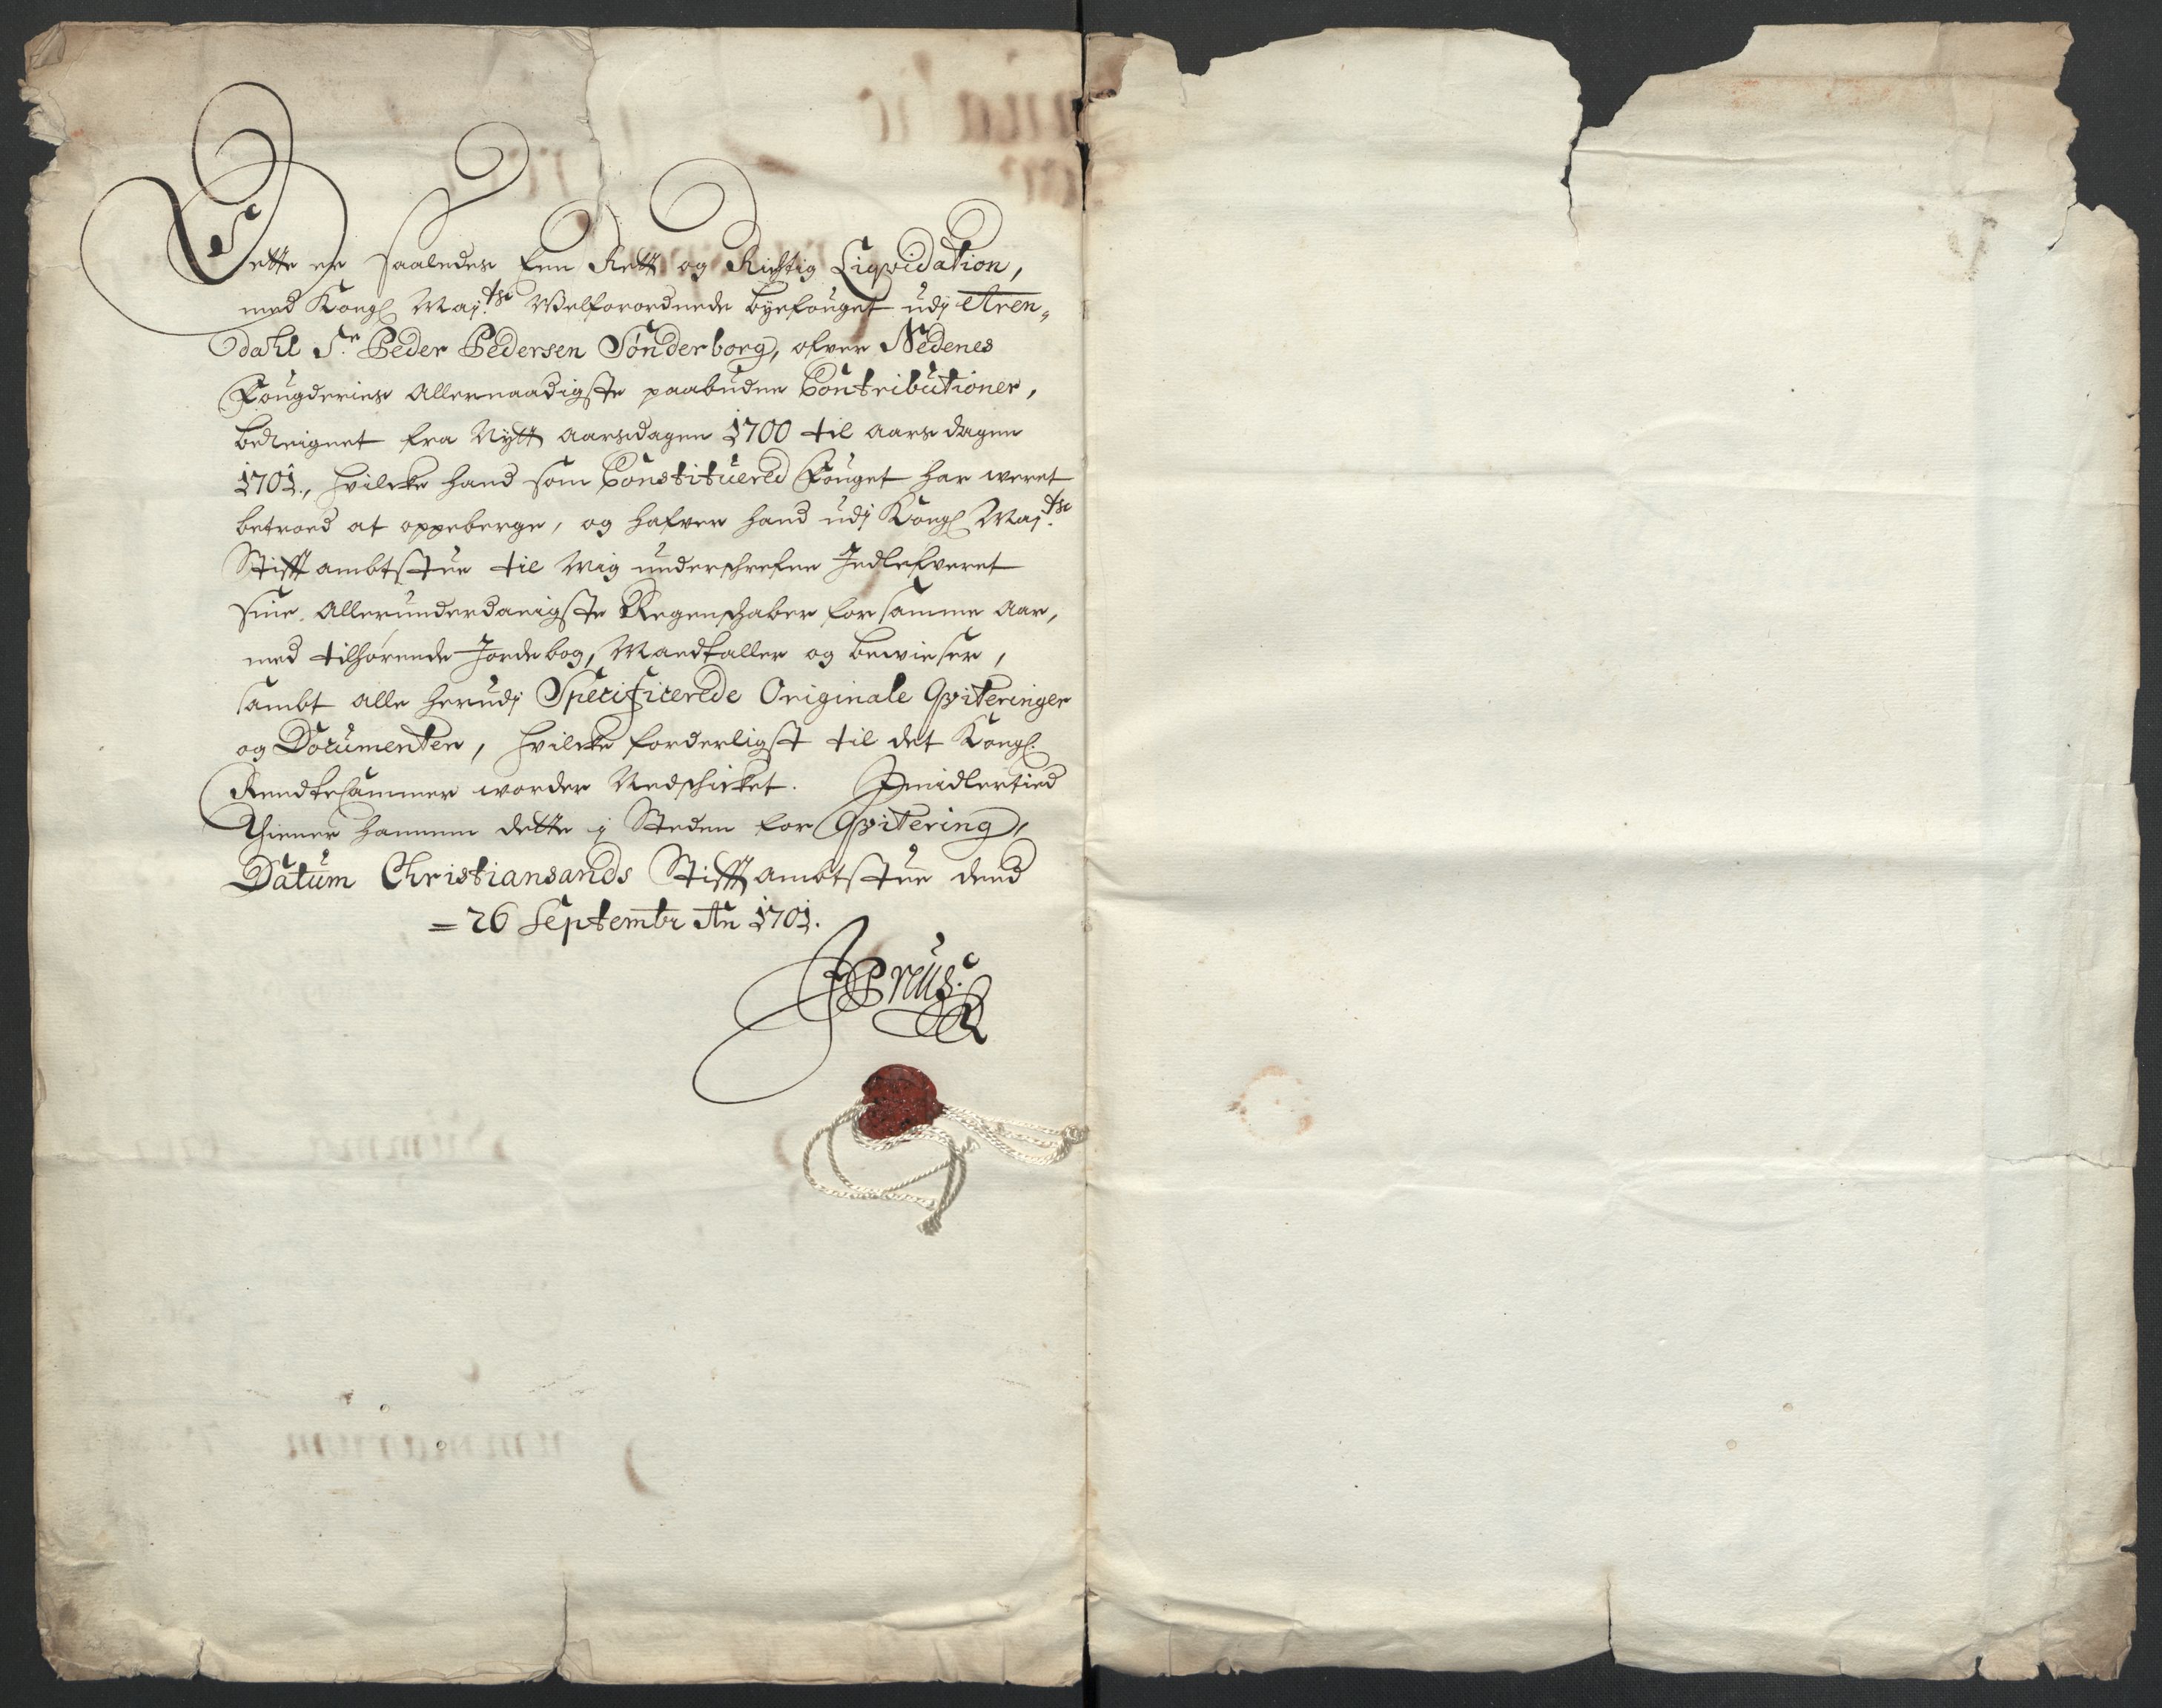 Dette er saaledes Een Rett og Richtig Liqvidation,
med Kongl Maj:tss Welforordnede byefouget udj Aren„
dahl Sr. Peder Pedersen Sønderborg, ofver Nedenes
Fougderies Allernaadigste paabudne Contributioner,
beReignet fra Nytt Aarsdagen 1700 til Aarsdagen
1701., hvilcke hand som Constituered Fouget har weret
betroed at oppeberge, og hafver hand udj Kongl Maj:tss
Stifft ambtstue til Mig underschrefne Indlefveret
sine Allerunderdanigste Regenschaber for samme Aar,
med tilhørende Jordebog, Mandtaller og bewieser,
sambt alle herudj Specificerede Originale Qviteringer
og Documenter, hvilcke forderligst til det Kongl.
Rendtekammer worder Nedschicket. Imidlertied
Thiener hannem dette j Steden for Qvitering,
Datum Christiansands Stifft ambtstue dend
= 26 Septembr An 1701.
JPreus.